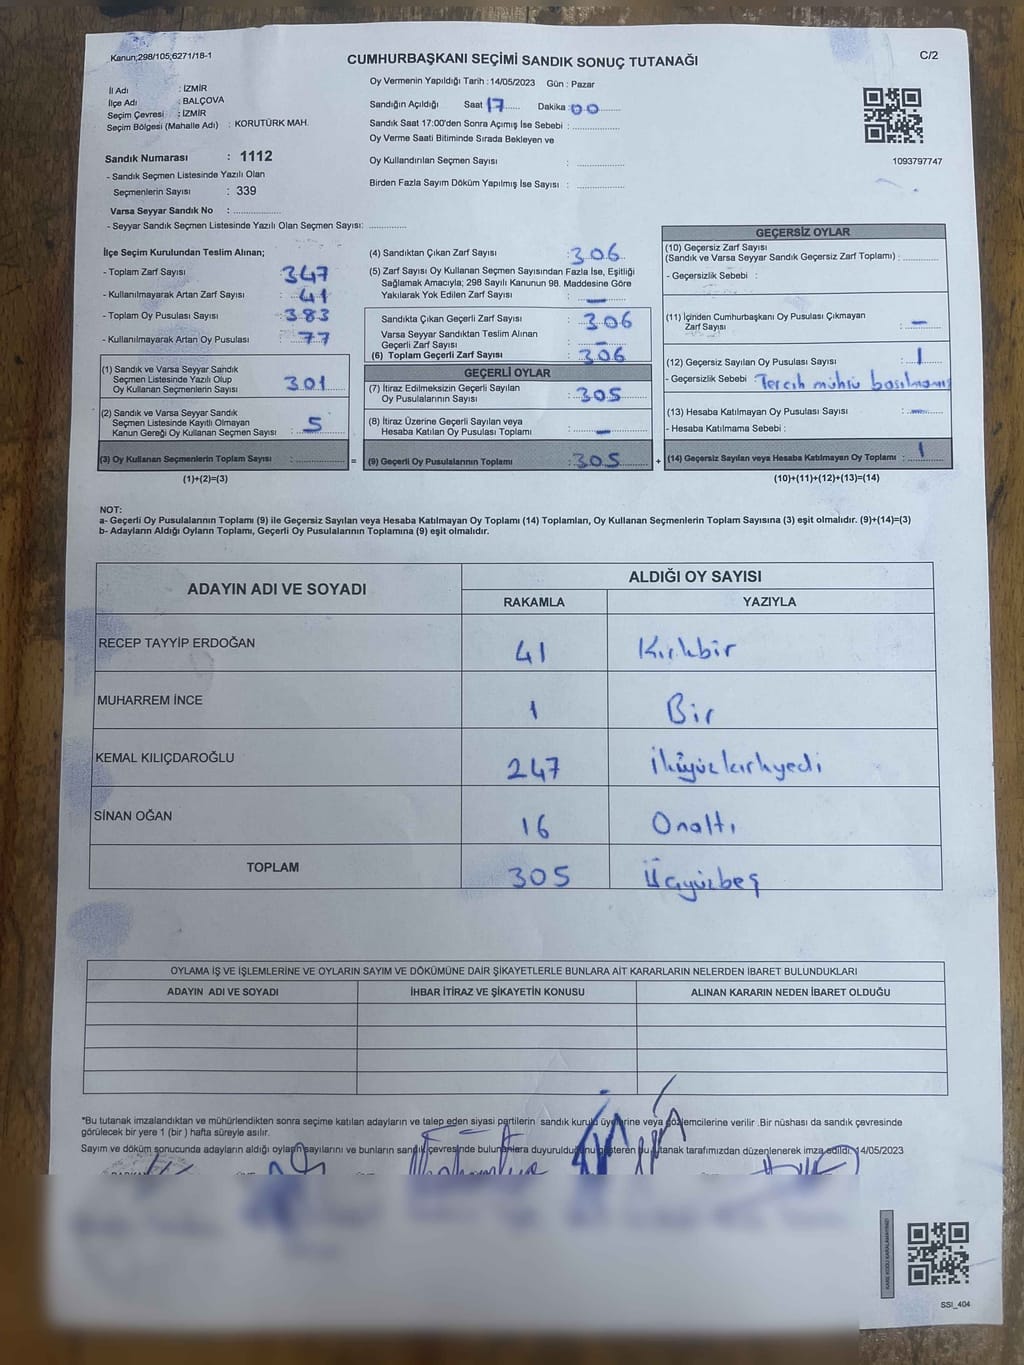 Kanun;298/105;6271/18-1
CUMHURBAŞKANI SEÇİMİ SANDIK SONUÇ TUTANAĞI
C/2
İl Adı : İZMİR
İlçe Adı : BALÇOVA
Seçim Çevresi : İZMİR
Seçim Bölgesi (Mahalle Adı) : KORUTÜRK MAH.
Sandık Numarası : 1112
- Sandık Seçmen Listesinde Yazılı Olan
Seçmenlerin Sayısı : 339
Varsa Seyyar Sandık No : ...............
- Seyyar Sandık Seçmen Listesinde Yazılı Olan Seçmen Sayısı: ............
Oy Vermenin Yapıldığı Tarih : 14/05/2023 Gün : Pazar
Sandığın Açıldığı Saat 17 Dakika : 00
Sandık Saat 17:00'den Sonra Açımış İse Sebebi : ...............
Oy Verme Saati Bitiminde Sırada Bekleyen ve
Oy Kullandırılan Seçmen Sayısı : ...............
Birden Fazla Sayım Döküm Yapılmış İse Sayısı : ...............
1093797747
İlçe Seçim Kurulundan Teslim Alınan;
- Toplam Zarf Sayısı 347
- Kullanılmayarak Artan Zarf Sayısı : 41
- Toplam Oy Pusulası Sayısı : 383
- Kullanılmayarak Artan Oy Pusulası : 77
(1) Sandık ve Varsa Seyyar Sandık
Seçmen Listesinde Yazılı Olup
Oy Kullanan Seçmenlerin Sayısı : 301
(2) Sandık ve Varsa Seyyar Sandık
Seçmen Listesinde Kayıtlı Olmayan
Kanun Gereği Oy Kullanan Seçmen Sayısı : 5
(3) Oy Kullanan Seçmenlerin Toplam Sayısı : ............... =
(1)+(2)=(3)
(4) Sandıktan Çıkan Zarf Sayısı : 306
(5) Zarf Sayısı Oy Kullanan Seçmen Sayısından Fazla İse, Eşitliği
Sağlamak Amacıyla; 298 Sayılı Kanunun 98. Maddesine Göre
Yakılarak Yok Edilen Zarf Sayısı : —
Sandıkta Çıkan Geçerli Zarf Sayısı : 306
Varsa Seyyar Sandıktan Teslim Alınan
Geçerli Zarf Sayısı : —
(6) Toplam Geçerli Zarf Sayısı : 306
GEÇERLİ OYLAR
(7) İtiraz Edilmeksizin Geçerli Sayılan
Oy Pusulalarının Sayısı : 305
(8) İtiraz Üzerine Geçerli Sayılan veya
Hesaba Katılan Oy Pusulası Toplamı : —
(9) Geçerli Oy Pusulalarının Toplamı : 305 +
GEÇERSİZ OYLAR
(10) Geçersiz Zarf Sayısı
(Sandık ve Varsa Seyyar Sandık Geçersiz Zarf Toplamı) : ............
- Geçersizlik Sebebi :
(11) İçinden Cumhurbaşkanı Oy Pusulası Çıkmayan
Zarf Sayısı : —
(12) Geçersiz Sayılan Oy Pusulası Sayısı : 1
- Geçersizlik Sebebi : Tercih mührü basılmamış
(13) Hesaba Katılmayan Oy Pusulası Sayısı : —
- Hesaba Katılmama Sebebi :
(14) Geçersiz Sayılan veya Hesaba Katılmayan Oy Toplamı : 1
(10)+(11)+(12)+(13)=(14)
NOT:
a- Geçerli Oy Pusulalarının Toplamı (9) ile Geçersiz Sayılan veya Hesaba Katılmayan Oy Toplamı (14) Toplamları, Oy Kullanan Seçmenlerin Toplam Sayısına (3) eşit olmalıdır. (9)+(14)=(3)
b- Adayların Aldığı Oyların Toplamı, Geçerli Oy Pusulalarının Toplamına (9) eşit olmalıdır.
ADAYIN ADI VE SOYADI ALDIĞI OY SAYISI
RAKAMLA YAZIYLA
RECEP TAYYİP ERDOĞAN 41 Kırkbir
MUHARREM İNCE 1 Bir
KEMAL KILIÇDAROĞLU 247 İkiyüzkırkyedi
SİNAN OĞAN 16 Onaltı
TOPLAM 305 Üçyüzbeş
OYLAMA İŞ VE İŞLEMLERİNE VE OYLARIN SAYIM VE DÖKÜMÜNE DAİR ŞİKAYETLERLE BUNLARA AİT KARARLARIN NELERDEN İBARET BULUNDUKLARI
ADAYIN ADI VE SOYADI İHBAR İTİRAZ VE ŞİKAYETİN KONUSU ALINAN KARARIN NEDEN İBARET OLDUĞU
*Bu tutanak imzalandıktan ve mühürlendikten sonra seçime katılan adayların ve talep eden siyasi partilerin sandık kurulu üyelerine veya gözlemcilerine verilir .Bir nüshası da sandık çevresinde
görülecek bir yere 1 (bir ) hafta süreyle asılır.
Sayım ve döküm sonucunda adayların aldığı oyların sayılarını ve bunların sandık çevresinde bulunanlara duyurulduğunu gösteren bu tutanak tarafımızdan düzenlenerek imza edildi. 14/05/2023
KARE KODU KARALAMAYINIZ!
SSI_404